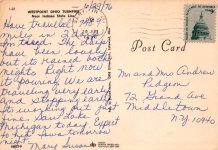 I-28
WESTPORT OHIO TURNPIKE
Near Indiana State Line
6/23/76
Have traveled 709
miles in 2 days.
I'm tired. The days
have been lovely
but its rained both
nights. Right now
pouring. We are
traveling very early
and stopping early
to swim but not
time. Saw Lake
Michigan today. Expect
to hit Iowa tomorrow
night.
Mary Susan
Post Card
Mr and Mrs Andrew
Pidgeon
72 Grand Ave
Middletown
N.Y. 10940